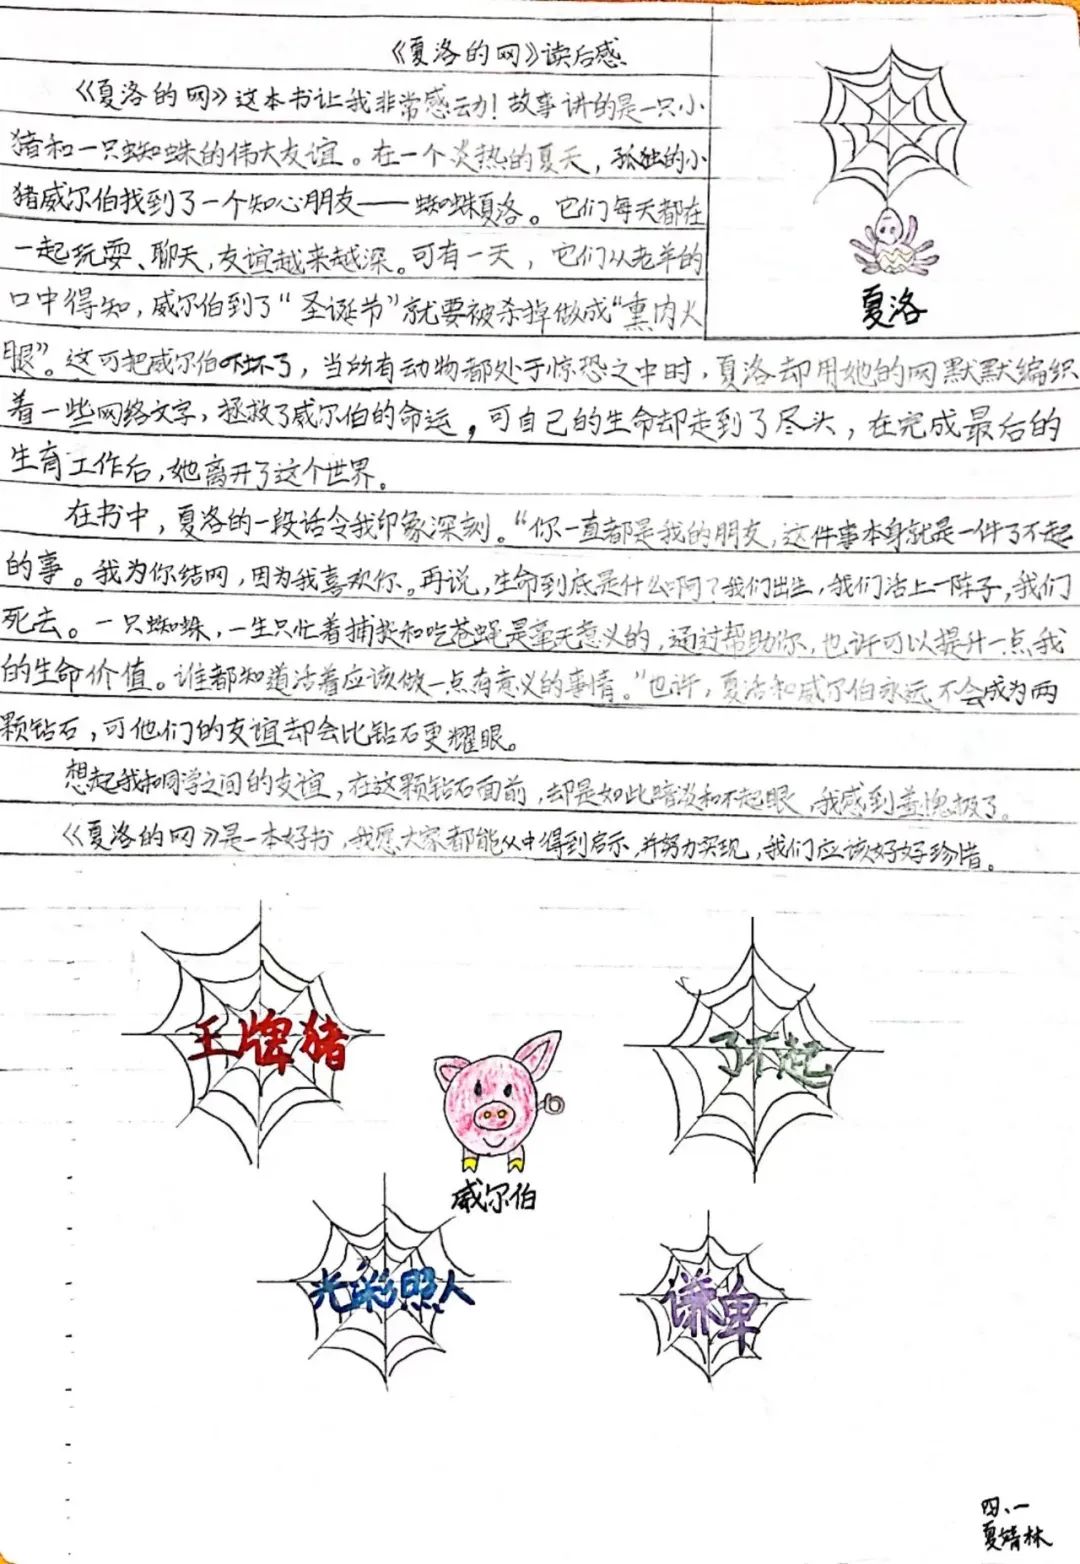 《夏洛的网》读后感
《夏洛的网》这本书让我非常感动！故事讲的是一只小
猪和一只蜘蛛的伟大友谊。在一个炎热的夏天，孤独的小
猪威尔伯找到了一个知心朋友——蜘蛛夏洛。它们每天都在
一起玩耍、聊天，友谊越来越深。可有一天，它们从老羊的
口中得知，威尔伯到了“圣诞节”就要被杀掉做成“熏肉火
腿”。这可把威尔伯吓坏了，当所有动物都处于惊恐之中时，夏洛却用她的网默默编织
着一些网络文字，拯救了威尔伯的命运，可自己的生命却走到了尽头，在完成最后的
生育工作后，她离开了这个世界。
在书中，夏洛的一段话令我印象深刻。“你一直都是我的朋友，这件事本身就是一件了不起
的事。我为你结网，因为我喜欢你。再说，生命到底是什么啊？我们出生，我们活上一阵子，我们
死去。一只蜘蛛，一生只忙着捕捉和吃苍蝇是毫无意义的，通过帮助你，也许可以提升一点我
的生命价值。谁都知道活着应该做一点有意义的事情。”也许，夏洛和威尔伯永远不会成为两
颗钻石，可他们的友谊却会比钻石更耀眼。
想起我和同学之间的友谊，在这颗钻石面前，却是如此暗淡和不起眼，我感到羞愧极了。
《夏洛的网》是一本好书，我愿大家都能从中得到启示，并努力实现，我们应该好好珍惜。
夏洛
王牌猪
了不起
威尔伯
光彩照人
谦卑
四、一
夏婧林